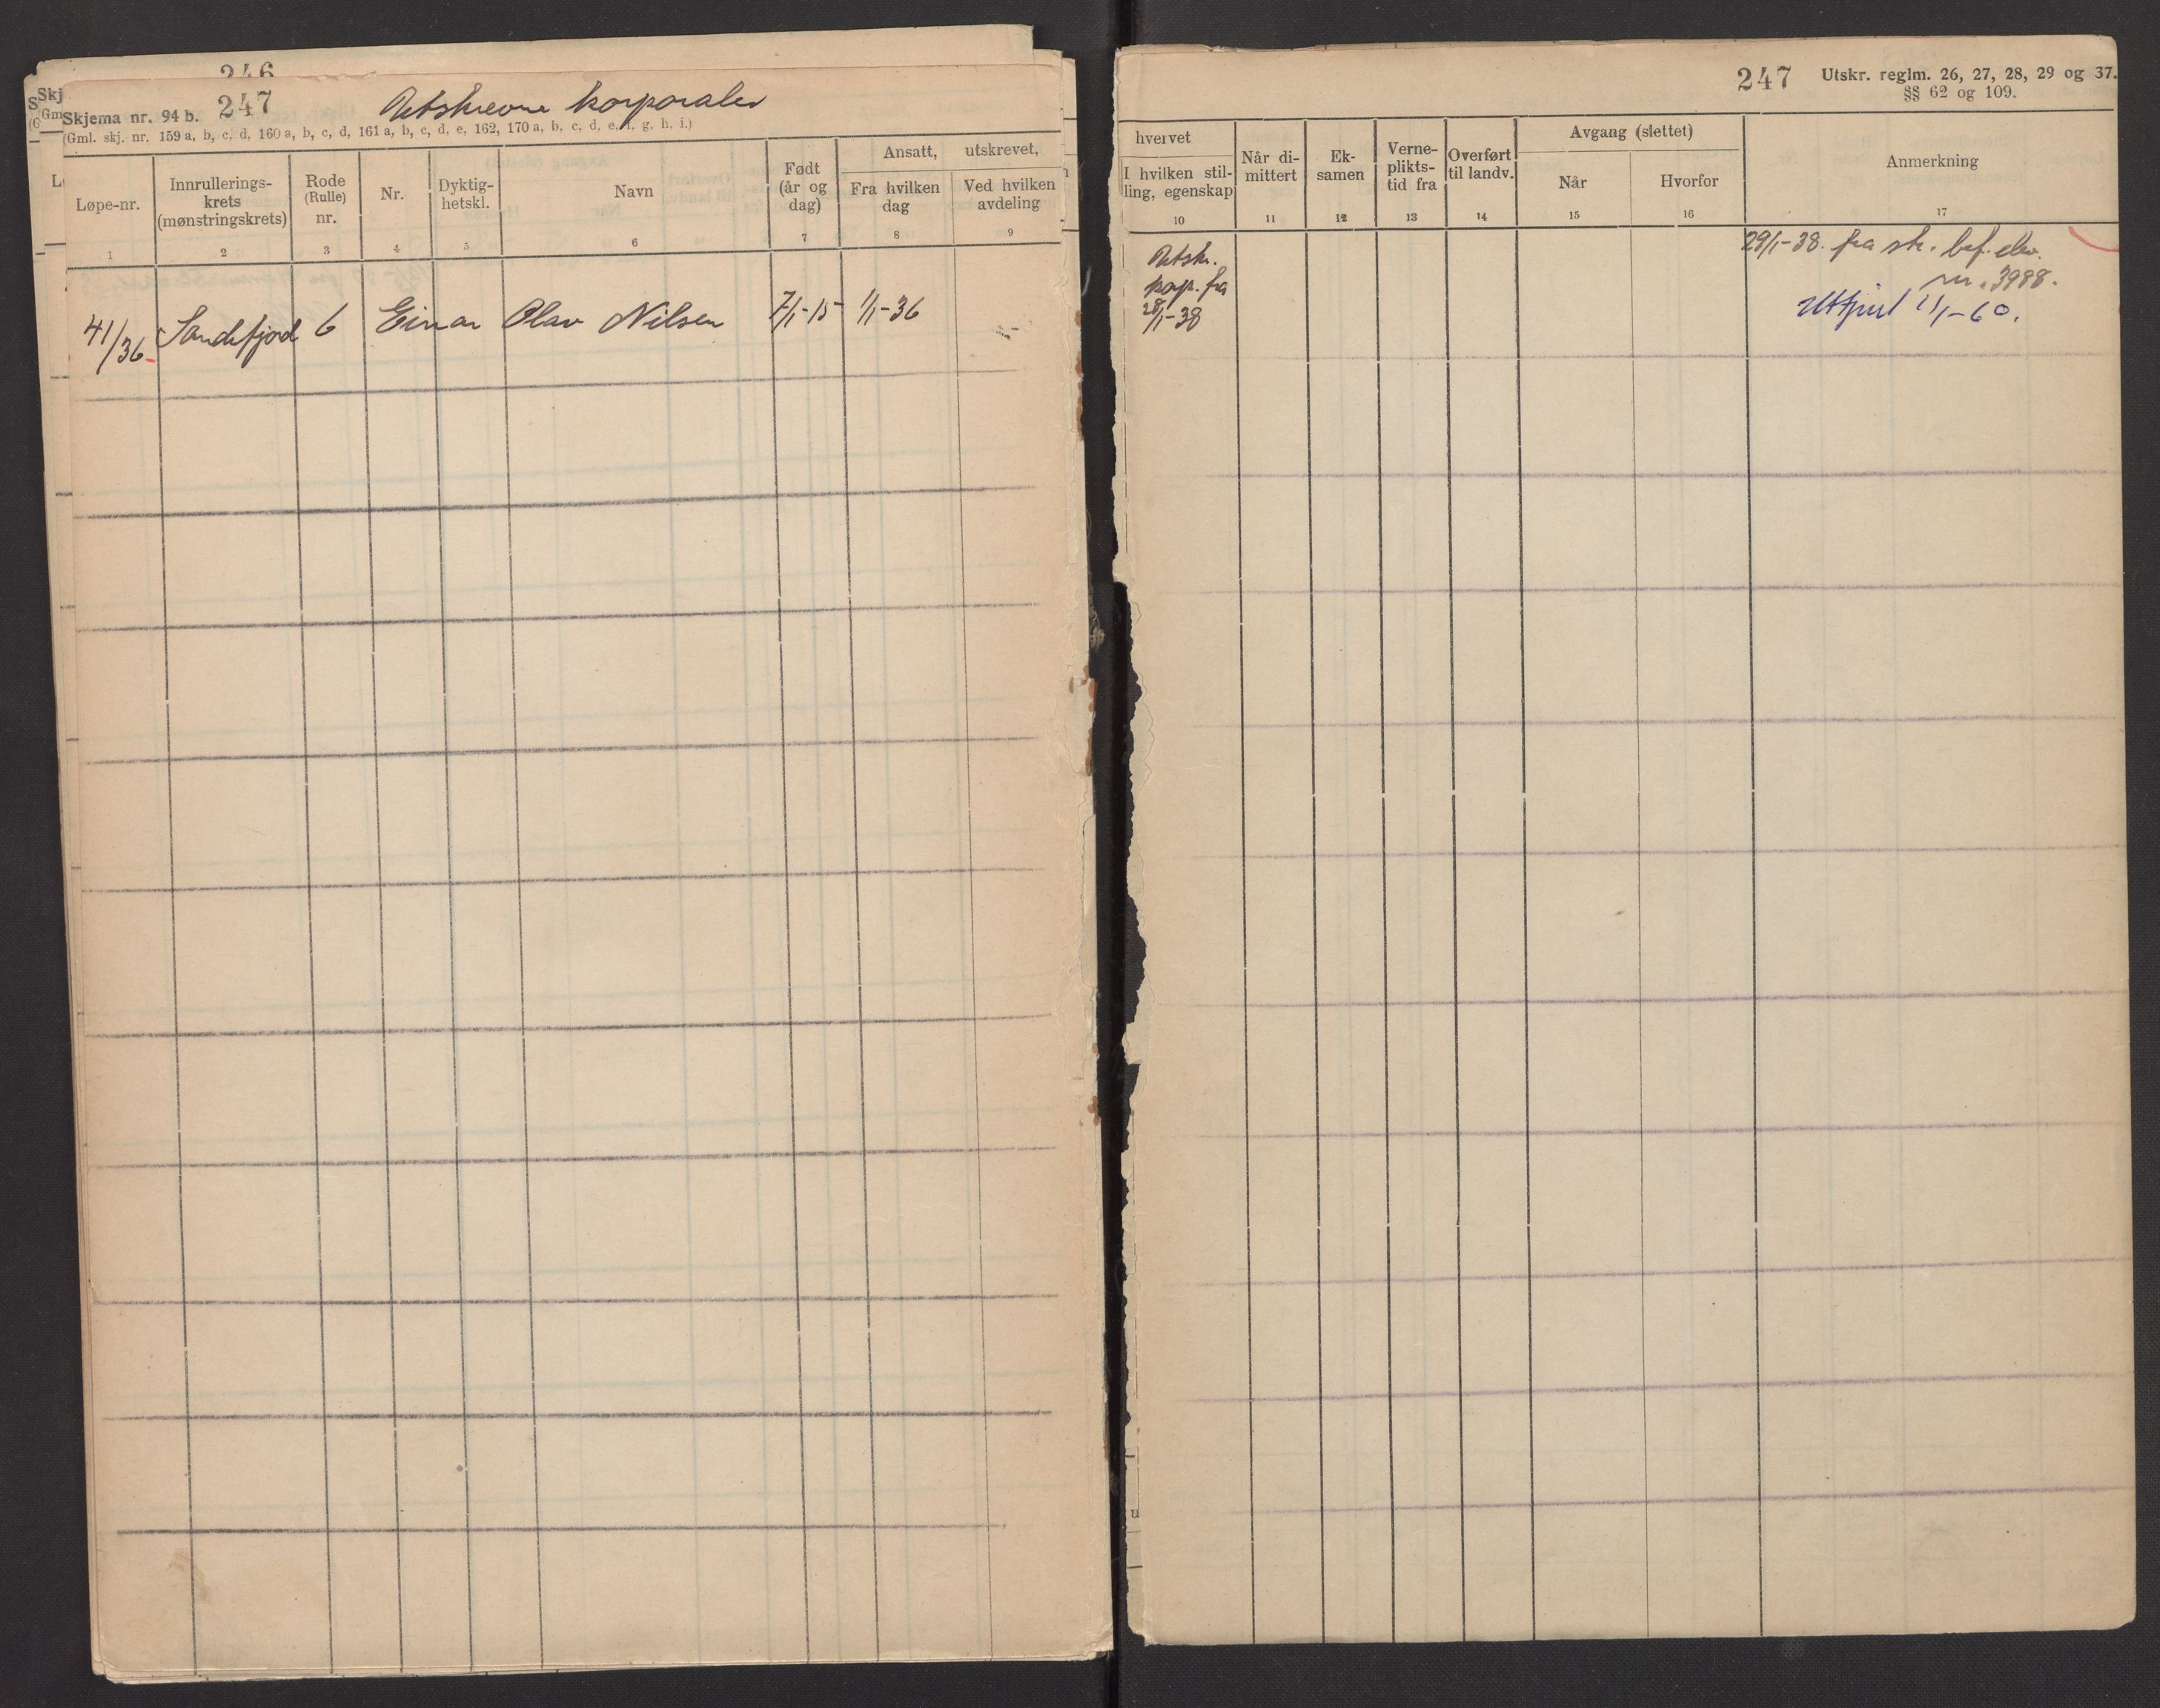 246
247
Utskrevne korporaler
Skj
Skjema nr. 94 b.
(Gml. skj. nr. 159 a, b, c, d, 160 a, b, c, d, 161 a, b, c, d, e, 162, 170 a, b, c, d, e, f, g, h, i.)
Løpe-nr.
Innrullerings-
krets
(mønstringskrets)
Rode
(Rulle)
nr.
Nr.
Dyktig-
hetskl.
Navn
Født
(år og
dag)
Ansatt, utskrevet,
Fra hvilken
dag
Ved hvilken
avdeling
1 2 3 4 5 6 7 8 9
41/36 Sandefjord 6 Einar Olav Nilsen 7/1-15 1/1-36
247
Utskr. reglm. 26, 27, 28, 29 og 37.
§§ 62 og 109.
hvervet
I hvilken stil-
ling, egenskap
Når di-
mittert
Ek-
samen
Verne-
plikts-
tid fra
Overført
til landv.
Avgang (slettet)
Når
Hvorfor
Anmerkning
10 11 12 13 14 15 16 17
Utskr.
korp. fra
28/1-38
29/1-38. fra str. bef. elev.
nr. 3988.
Utført 1/1-60.